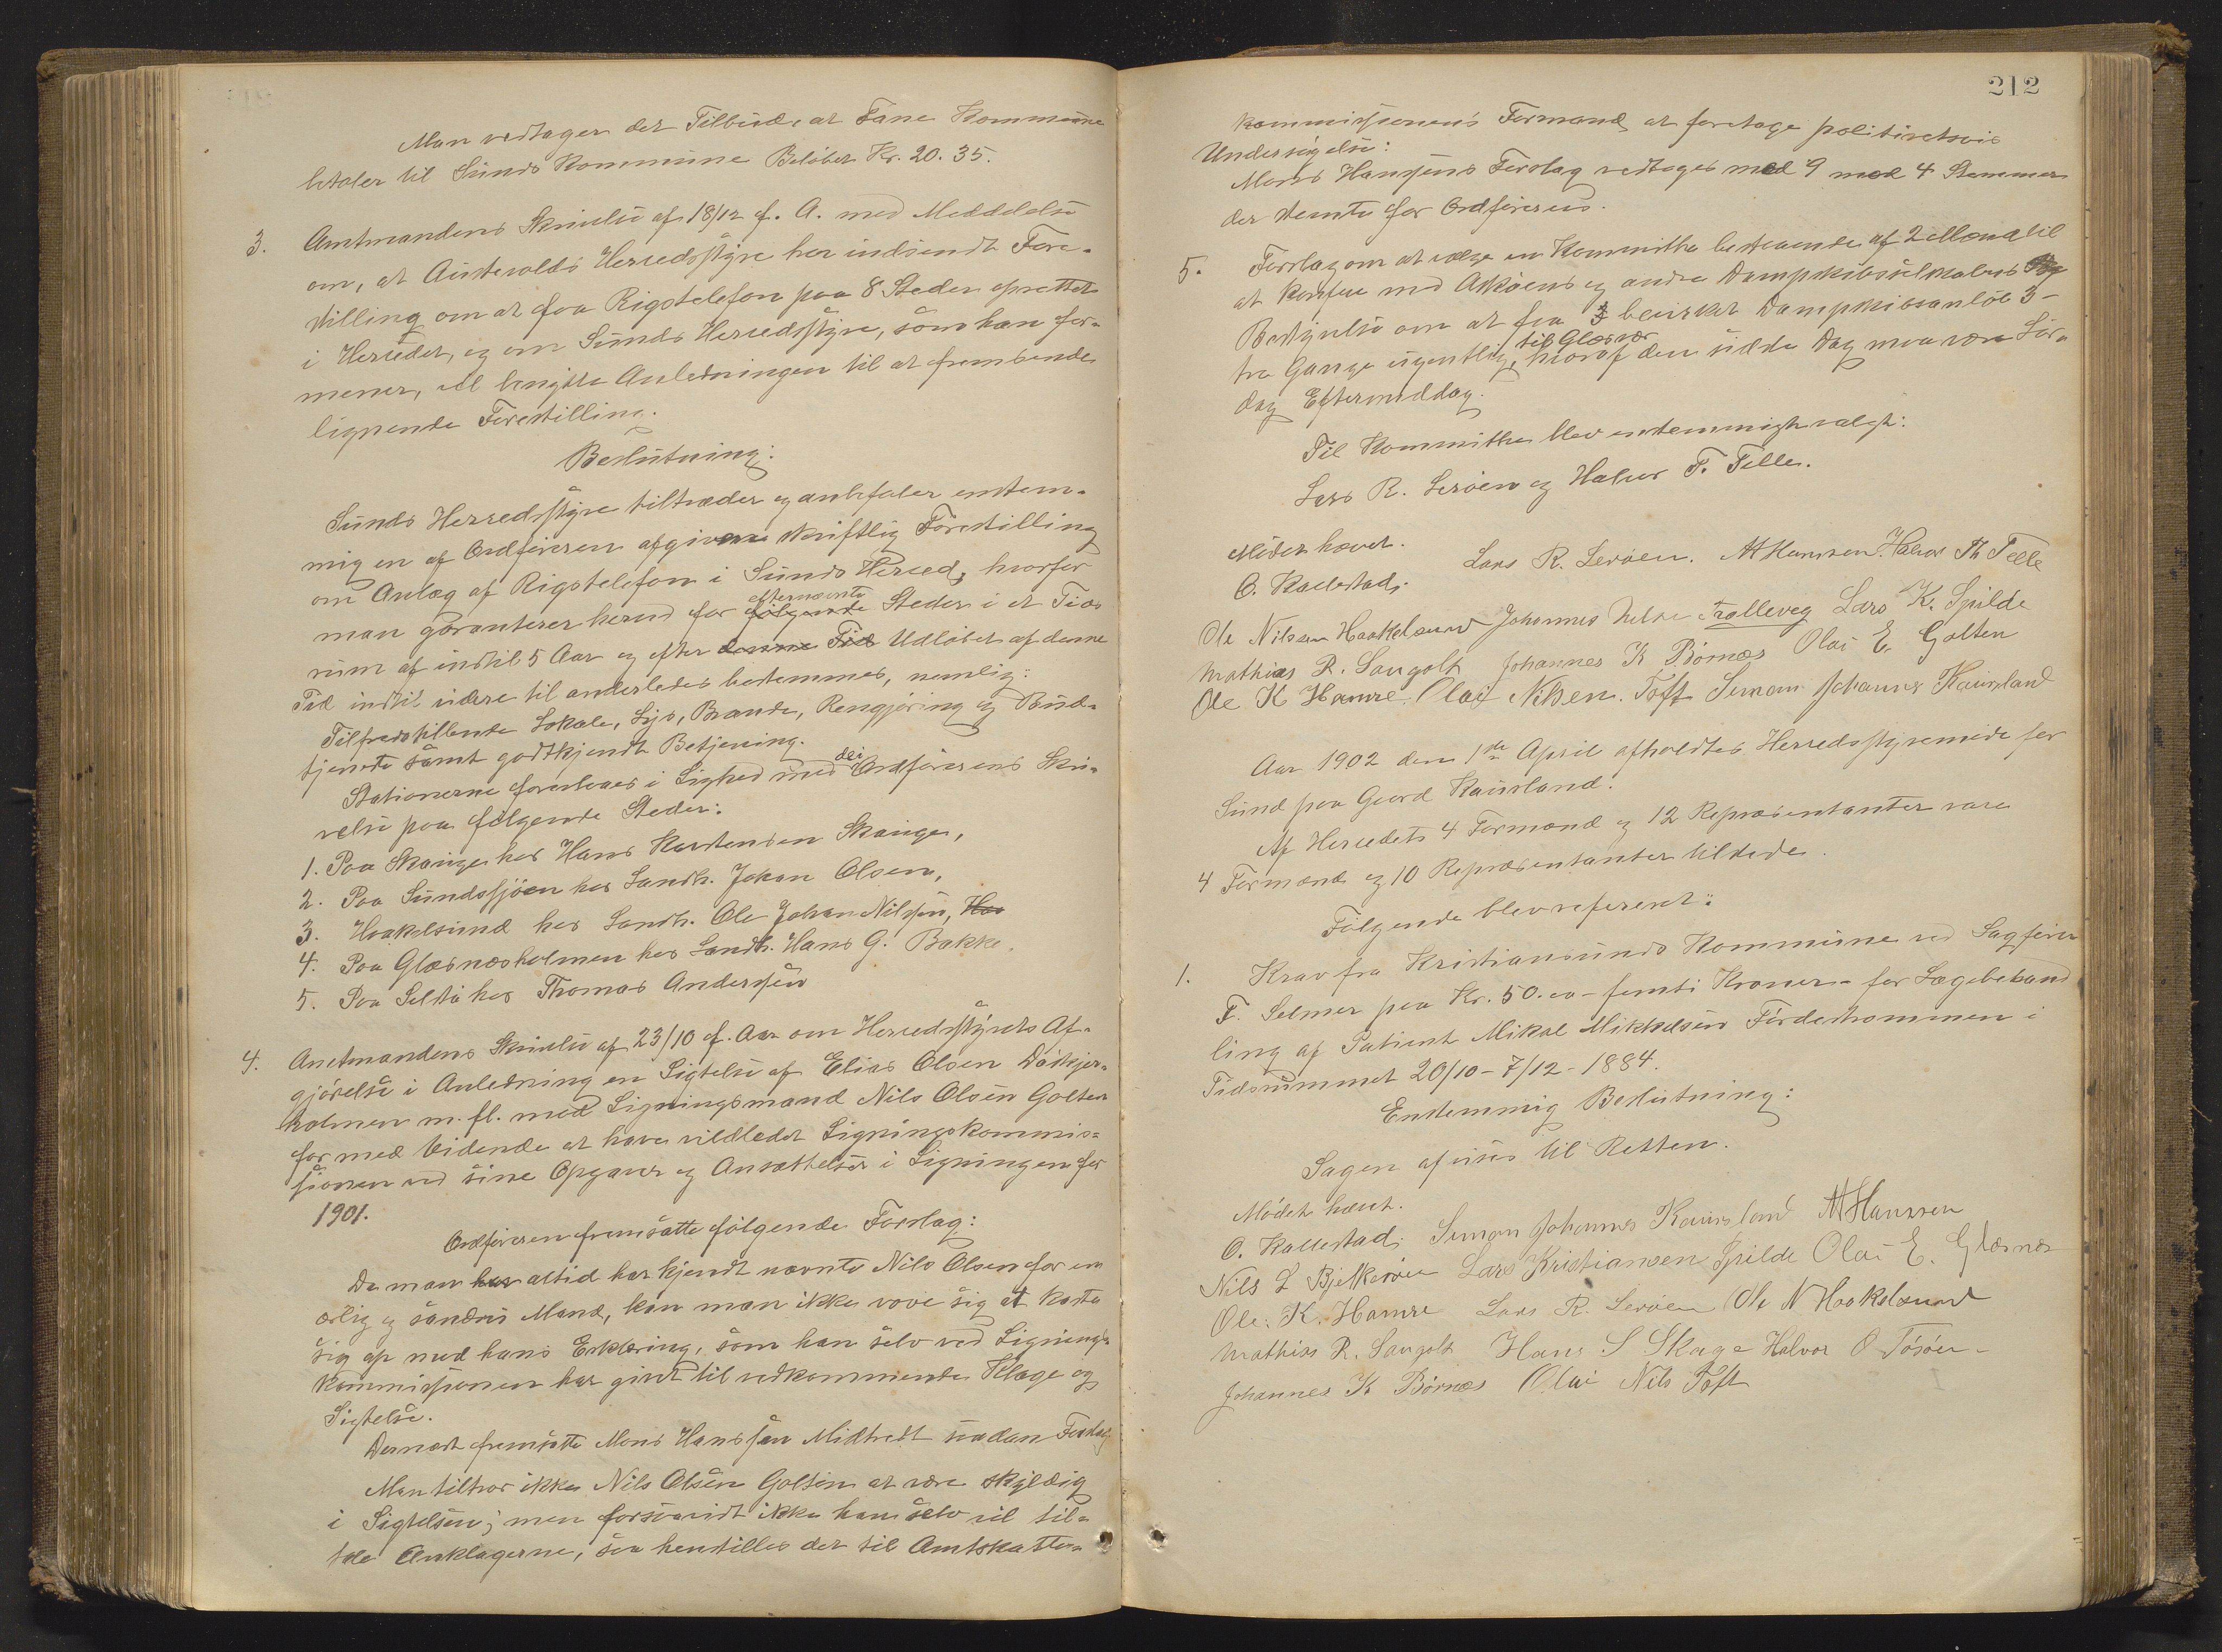 Man vedtager det Tilbud, at Fane Kommune
betaler til Sunds Kommune Beløbet Kr. 20.35.
3. Amtmandens Skrivelse af 18/12 f. A. med Meddelelse
om, at Austevolds Herredsstyre har indsendt Fore-
stilling om at faa Rigstelefon paa 8 Steder oprettet
i Herredet, og om Sunds Herredsstyre, som han for-
mener, vil benytte Anledningen til at fremsende
lignende Forestilling.
Beslutning:
Sunds Herredsstyre tiltræder og anbefaler enstem-
mig en af Ordføreren afgiven skriftlig Forestilling
om Anlæg af Rigstelefon i Sunds Herred, hvorfor
man garanterer herved for følgende efternævnte Steder i et Tids-
rum af indtil 5 Aar og efter denne Tid Udløbet af denne
Tid indtil videre til anderledes bestemmes, nemlig:
Tilfredsstillende Lokale, Lys, Brænde, Rengjøring og Bud-
tjeneste samt godtkjendt Betjening.
Stationerne foreslaaes i Lighed med dei Ordførerens Skri-
velse paa følgende Steder:
1. Paa Skauge hos Hans Karstensen Skauge,
2. Paa Sundssjøen hos Landh. Johan Olsen,
3. Haakelsund hos Landh. Ole Johan Nilssen, Hos
4. Paa Glæsnesholmen hos Landh. Hans G. Bakke.
5. Paa Selstø hos Thomas Anderssen
4. Amtmandens Skrivelse af 23/10 f. Aar om Herredsstyrets Af-
gjørelse i Anledning en Sigtelse af Elias Olsen Dødkjer-
holmen m. fl. med Ligningsmand Nils Olsen Golten
for med Vidende at have vildledet Ligningskommis-
sionen ved sine Opgaver og Ansættelser i Ligningen for
1901.
Ordføreren fremsatte følgende Forslag:
Da man har altid har kjendt nævnte Nils Olsen for en
ærlig og sandru Mand, kan man ikke vove sig at kaste
sig op mod hans Erklæring, som han selv ved Lignings
kommissionen har givet til vedkommende Klage og
Sigtelse.
Dernæst fremsatte Mons Hanssen Midtvedt saadan Forslag
Man tiltror ikke Nils Olsen Golten at være skyldig
i Sigtelsen; men forsaavidt ikke han selv vil til-
tale Anklagerne, saa henstilles det til Amtskatte-
212
kommissionens Formand at foretage politiretsvis
Undersøgelse:
Mons Hanssens Forslag vedtoges med 9 mod 4 Stemmer
der stemte for Ordførerens.
5. Forslag om at vælge en Kommitte bestaaende af 2 Mænd til
at konferere med Askøens og andre Dampskibsselskabers
Bestyrelse om at faa 3 bevirket Dampskibsanløb 3-
tre Gange ugentlig til Glæsvær, hvoraf den sidste Dag maa være Lør-
dag Eftermiddag.
Til Kommitte blev enstemmigt valgt:
Lars R. Lerøen og Halvor T. Telle.
Mødet hævet.
O. Kallestad. Lars R. Lerøen. M Hanssen. Halvor Th Telle
Ole Nilssen Haakelsund Johannes Trælleveg Lars K. Spilde
Mathias R. Sangolt Johannes K Børnæs Olai E. Golten
Ole K Hamre. Olai Nilsen. Toft Simon Johannes Kausland
Aar 1902 den 1ste April afholdtes Herredsstyremøde for
Sund paa Gaard Kausland.
Af Herredets 4 Formænd og 12 Repræsentanter vare
4 Formænd og 10 Repræsentanter tilstede.
Følgende blev referert:
1. Krav fra Kristiansunds Kommune ved Sagfører
F. Selmer paa Kr. 50.00 - femti Kroner - for Lægebehand
ling af Patient Mikal Mikkelsen Førdespommen i
Tidsrummet 20/10 - 7/12 - 1884.
Enstemmig Beslutning:
Sagen afvises til Retten.
Mødet hævet.
O. Kallestad. Simon Johannes Kausland M Hanssen
Nils L Bjelkerøen Lars Kristiansen Spilde Olai E. Glæsnæs
Ole. K. Hamre Lars R. Lerøen Ole N Haakelsund
Mathias R. Sangolt Hans S Skage Halvor O Tøsøen
Johannes K Børnæs Olai Nils Toft